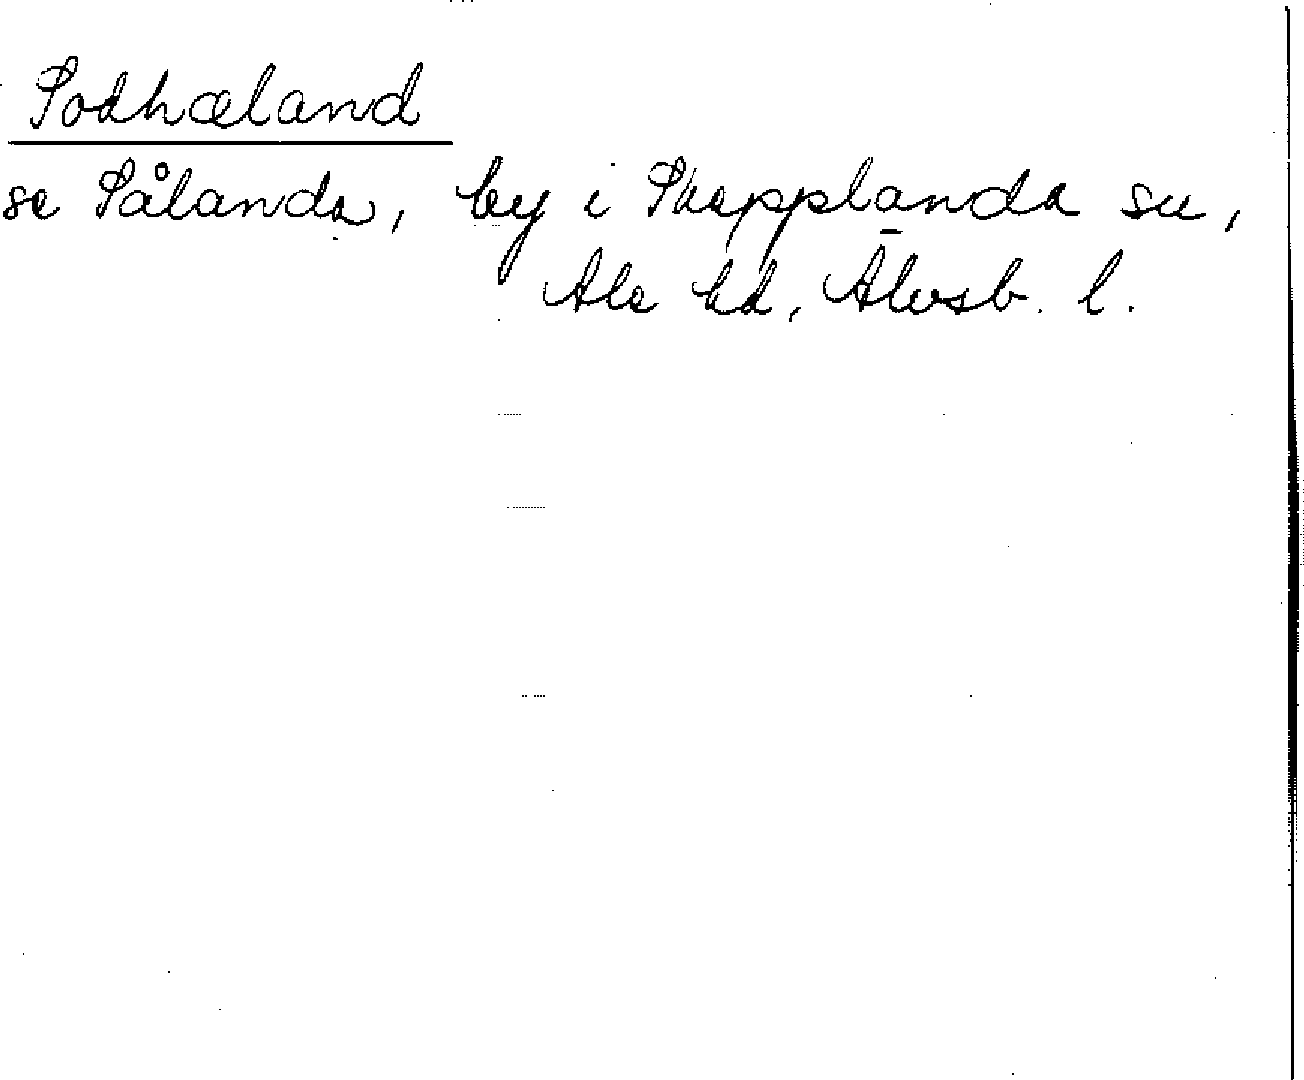 Sodhæland
se Sålanda, by i Skepplanda sn,
Ale hd, Älvsb. l.